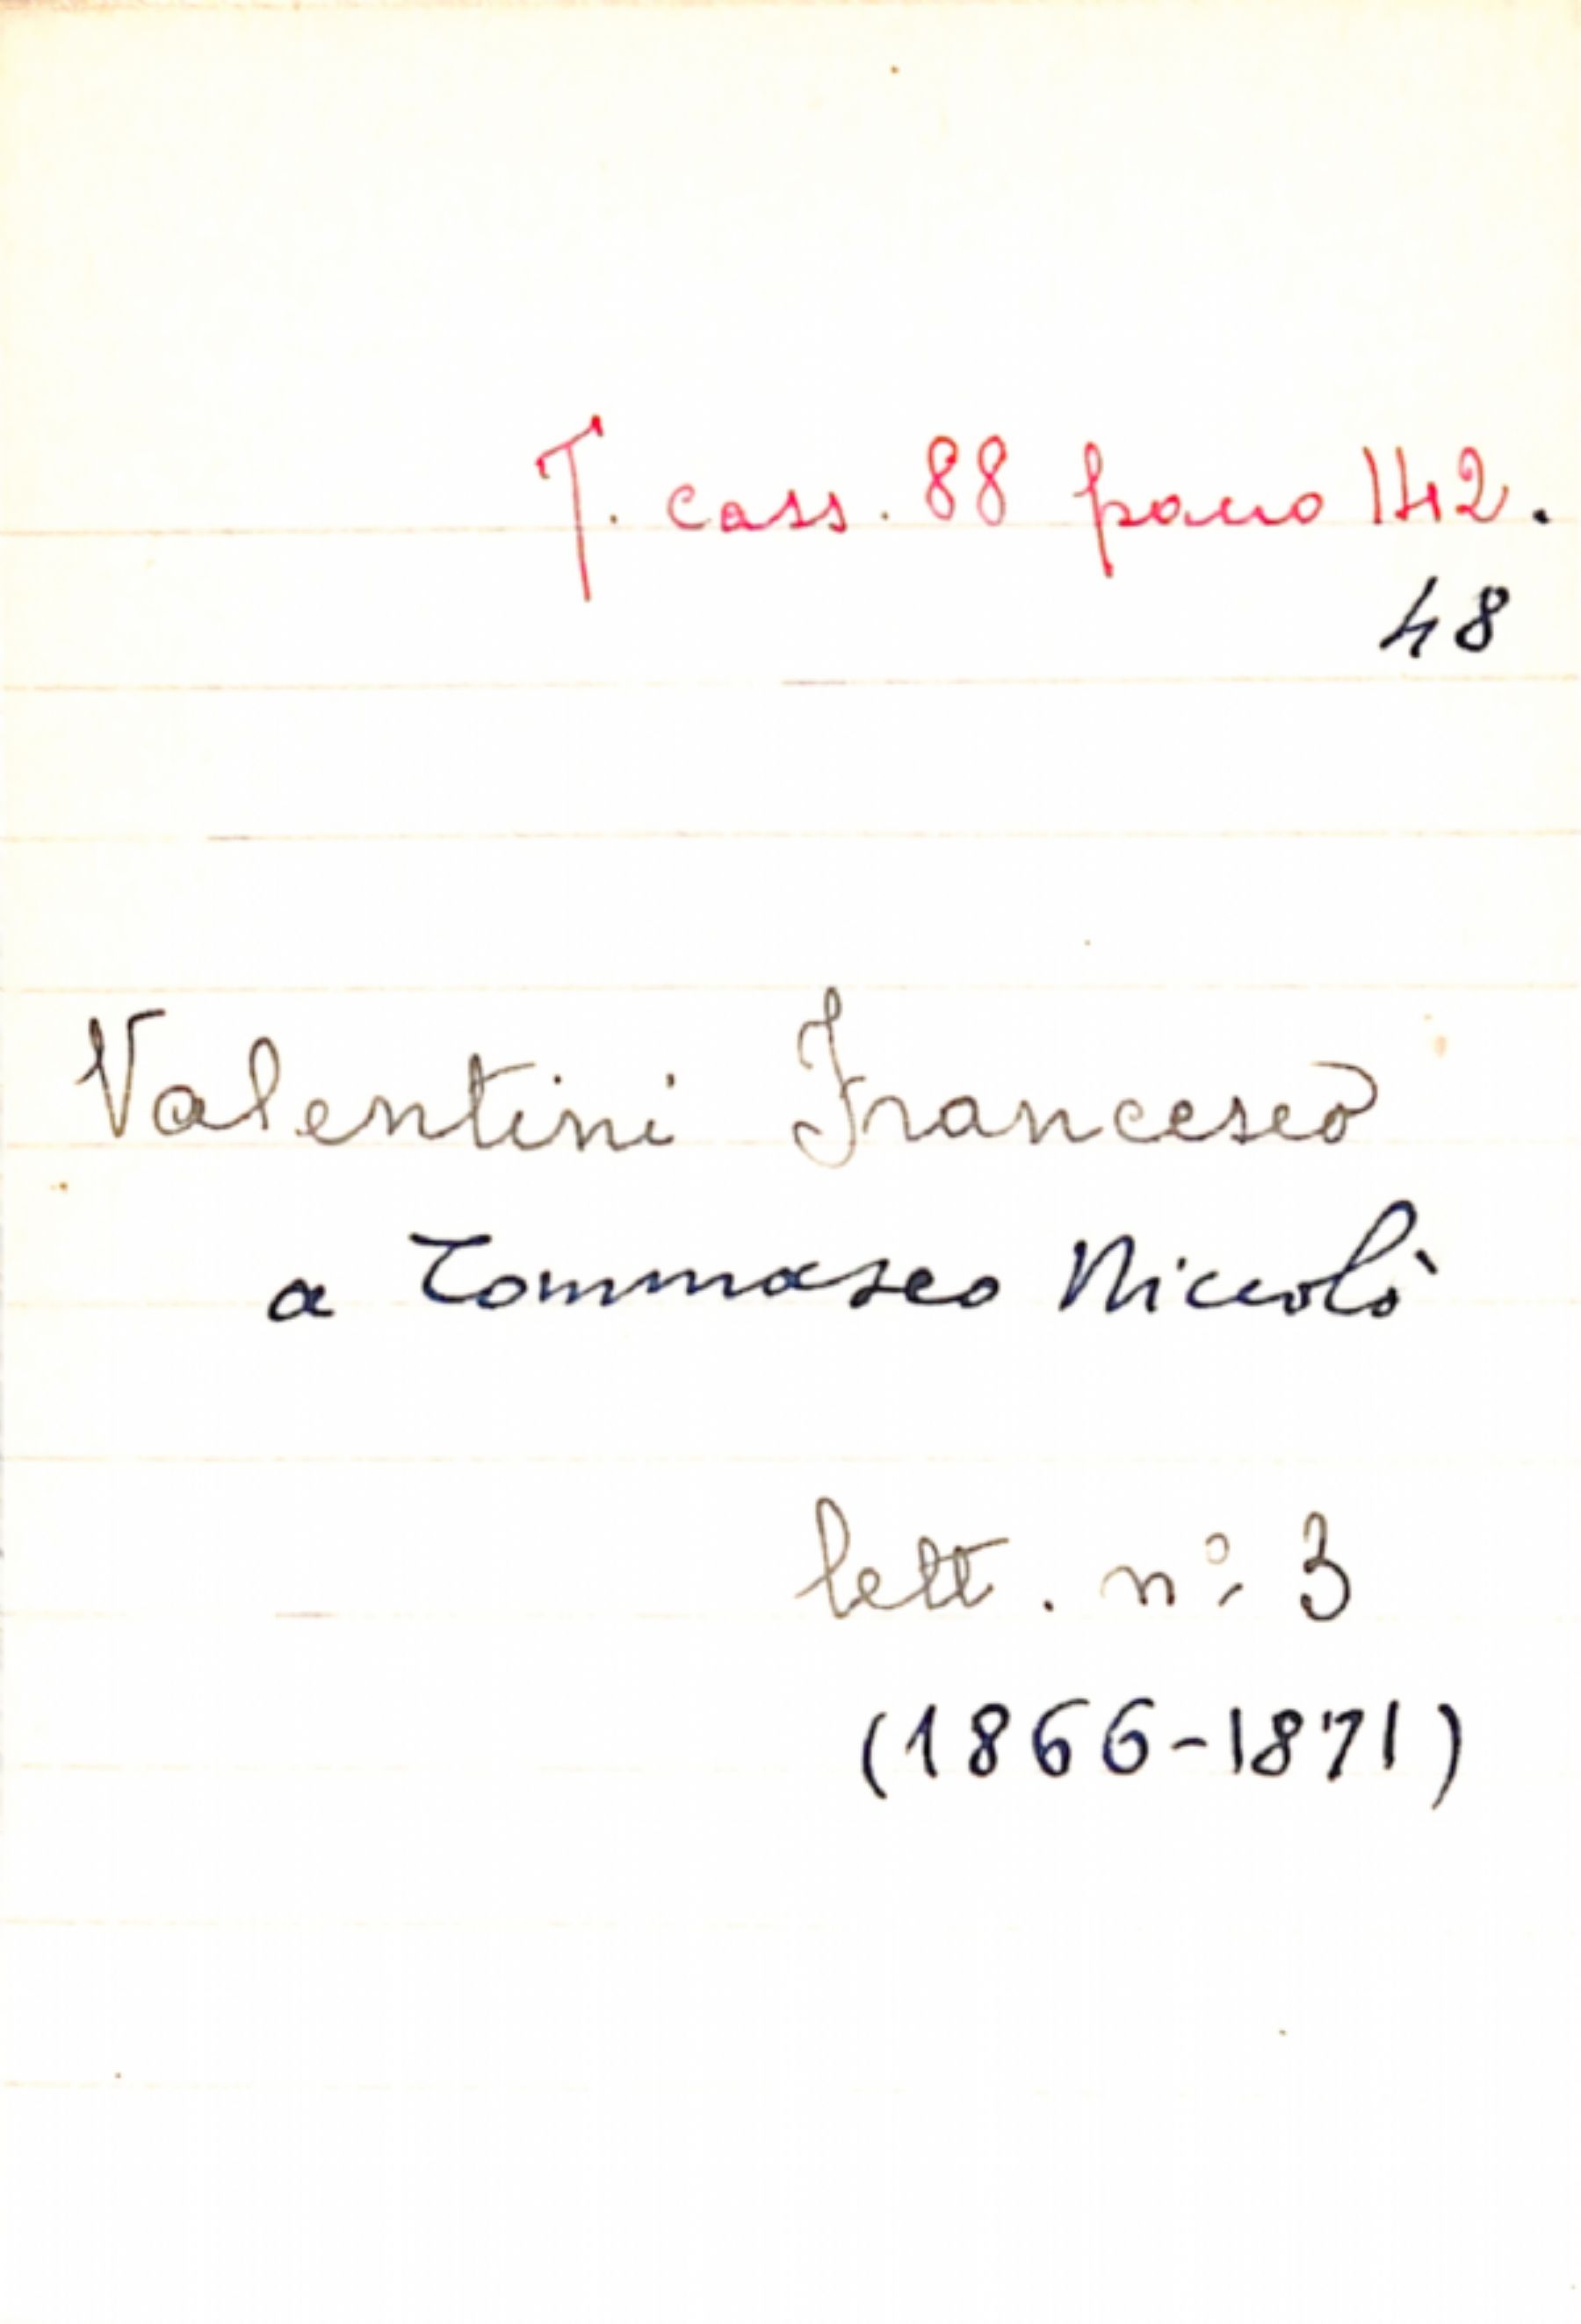 T. cass. 88 pacco 142.
48
Valentini Francesco
a Tommaseo Niccolò
lett. nº. 3
(1866-1871)